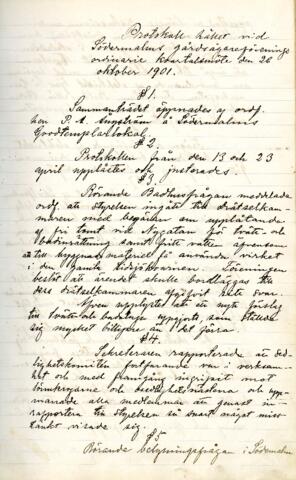 Protokoll hållet vid
Södermalms gårdsägareförenings
ordinarie kvartalsmöte den 26
oktober 1901.
§ 1.
Sammanträdet öppnades af ordf.
herr P. A. Ångström i Södermalms
Goodtemplarlokal.
§ 2.
Protokollen från den 13 och 23
april upplästes och justerades.
§ 3.
Rörande Badhusfrågan meddelade
ordf. att styrelsen ingått till drätselkam-
maren med begäran om upplåtande
af fri tomt vid Nygatan för tvätt- och
badinrättning samt fritt vatten äfvensom
att till byggnadsmateriel få använda virket
i den gamla
beslöt att ärendet skulle bordläggas till
dess drätselkammaren afgifvit sitt svar.
Äfven upplystes att en myn
till tvätt- och badstuga uppgjorts, som ställde
sig mycket billigare än det förra.
§ 4.
Sekreteraren rapporterade att sed-
lighetskomitén fortfarande var i verksam-
het och med framgång ingripit mot
lönnkrogarne och osedlighetsnästena och upp-
manade alla medlemmar att genast in-
rapportera till styrelsen så snart något miss-
tänkt visade sig.
§ 5.
Rörande belysningsfrågan i Södermalm